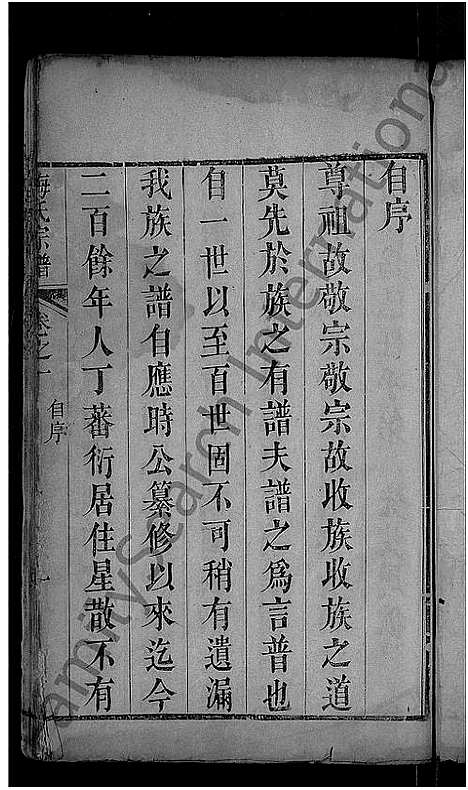 自序
尊祖故敬宗敬宗故收族收族之道
莫先於族之有譜夫譜之爲言普也
自一世以至百世固不可稍有遺漏
我族之譜自應時公纂修以來迄今
二百餘年人丁蕃衍居住星散不有
梅氏宗譜
卷之一
自序
一
FamilySearch International